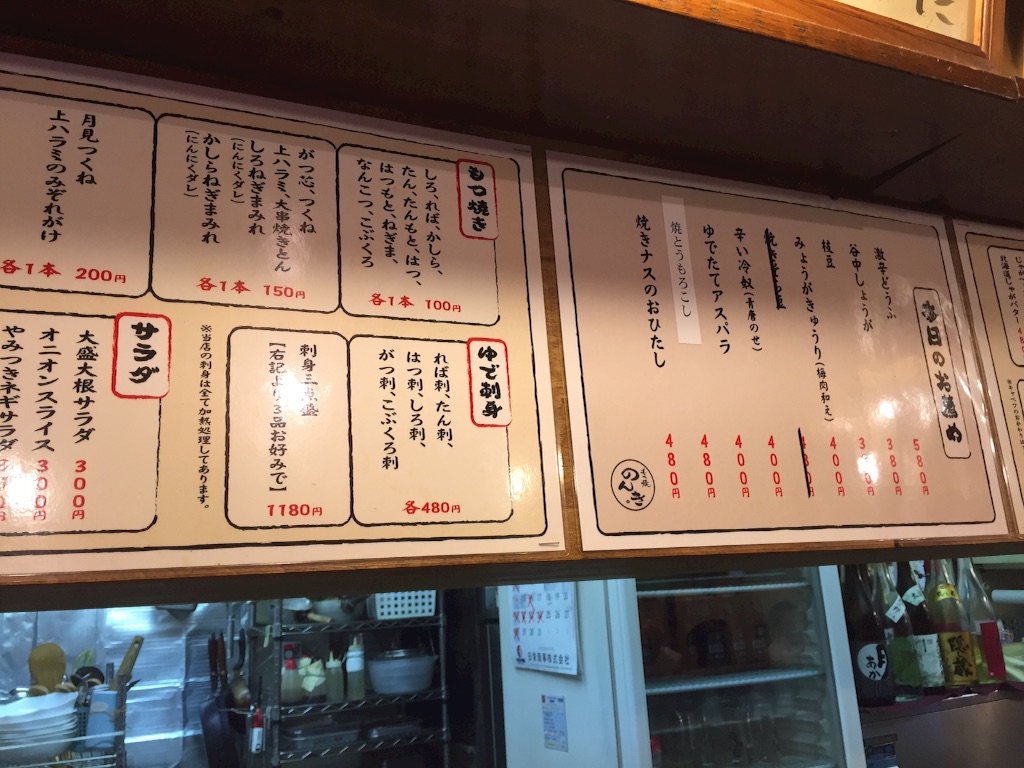 もつ焼き
しろ、れば、かしら、
たん、たんもと、はつ、
はつもと、ねぎま、
なんこつ、こぶくろ
各1本 100円
がつ芯、つくね
上ハラミ、大串焼きとん
しろねぎまみれ
(にんにくダレ)
かしらねぎまみれ
(にんにくダレ)
各1本 150円
月見つくね
上ハラミのみぞれがけ
各1本 200円
ゆで刺身
れば刺、たん刺、
はつ刺、しろ刺、
がつ刺、こぶくろ刺
各480円
刺身三点盛
【右記より3品お好みで】
1180円
※当店の刺身は全て加熱処理してあります。
サラダ
大盛大根サラダ
300円
オニオンスライス
300円
やみつきネギサラダ
本日のお薦め
激辛どうふ
580円
谷中しょうが
380円
枝豆
みょうがきゅうり(梅肉和え)
400円
辛い冷奴(青唐のせ)
400円
ゆでたてアスパラ
400円
焼とうもろこし
480円
焼きナスのおひたし
480円
もつ焼
のんき
北海道じゃがバター